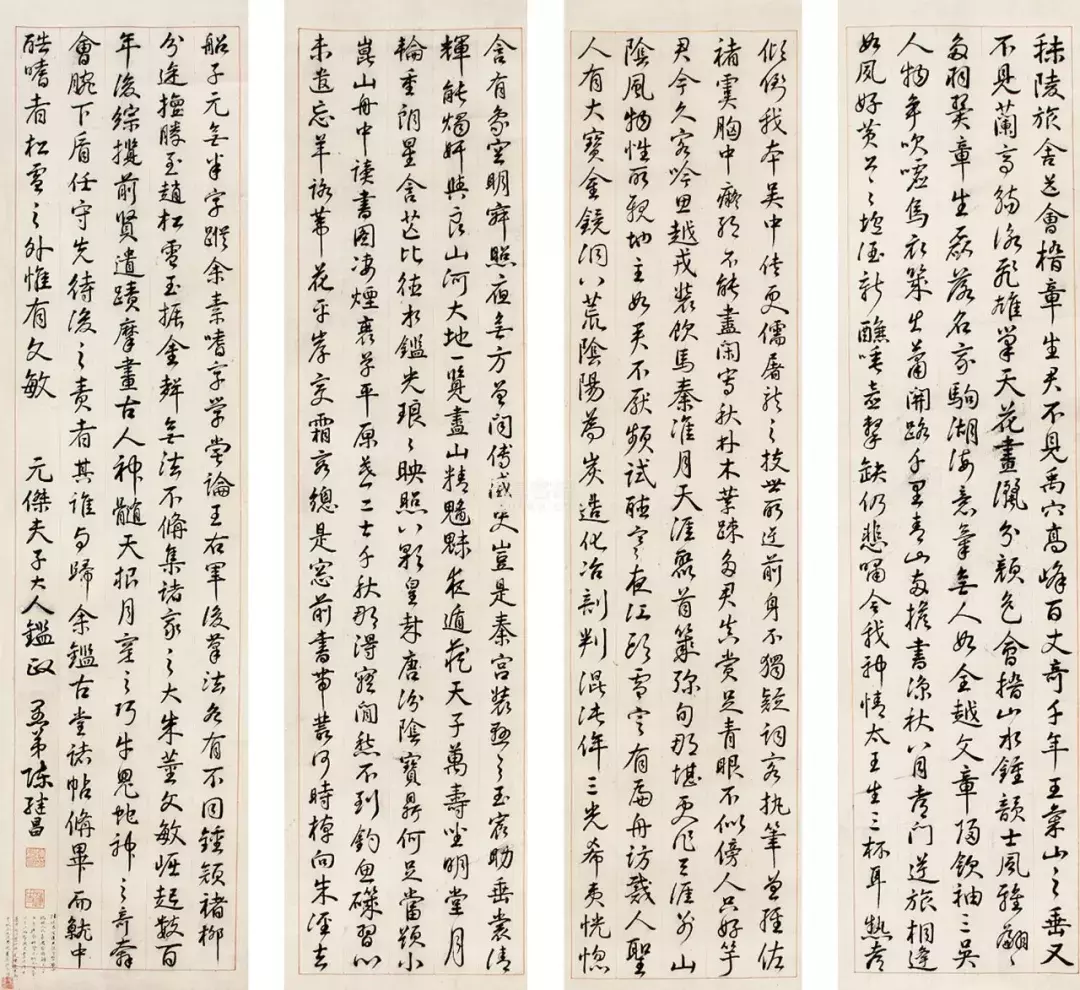 秣陵旅舍送會稽章生君不見禹穴高峰百丈奇千年王氣山之垂又
不見蘭亭觴詠飛雄筆天花畫灑分顏色會稽山水鍾韻士風雅翩〻
多羽翼章生磊落名家駒湖海意氣無人如全越文章歸領袖三吳
人物爭吹噓馬衣策出蕭關路千里青山女擔書涼秋八月青門逆旅相逢
如夙好黃公之壚酒新醮唾壺擊缺仍悲嘯令我神情太王生三杯耳熱考
傾倒我本吳中佳更儒屠龍之技世所逆前身不獨疑詞客執筆兼羅佐
褚虞胸中癡顛不能盡閑寫秋林木葉疎多君真賞足青眼不似傍人只好竽
君今久客吟思越戎裝飲馬秦淮月天涯羸首策彌旬那堪更作天涯別山
陰風物性所親地主如君不厭頻試聽寒夜江頭雪定有扁舟訪戴人聖
人有大寶金鏡洞八荒陰陽為炭造化冶剖判混沌侔三光希夷恍惚
含有象空明寂照夜無方曾聞傳滅史豈是秦宮裝玉宸助垂裳清
輝能燭奸與良山河大地一覽盡山精魑魅夜遁藏天子萬壽坐明堂月
輪重朗星含芒比德水鑑光琅〻映照八彩皇封唐汾陰寶鼎何足當題小
崑山舟中讀書圖淒煙衰草平原共二士千秋那得寢閒愁不到釣魚磯習心
未遺忘羊詠葦花乎岸交霜客總是窓前書帶叢何時棹向朱涇去
船子元無半字蹤余素嗜字學嘗論王右軍後筆法各有不同鍾顏褚柳
分途擅勝至趙松雪玉振金聲無法不備集諸家之大朱董文敏崛起數百
年後綜攬前賢遺蹟摩畫古人神髓天根月窟之巧牛鬼蛇神之奇奔
會腕下盾任守先待後之責者其誰與歸余鑑古堂諸帖備畢而觥中
酷嗜者松雪之外惟有文敏　元傑夫子大人鑑政　愚弟陳繼昌